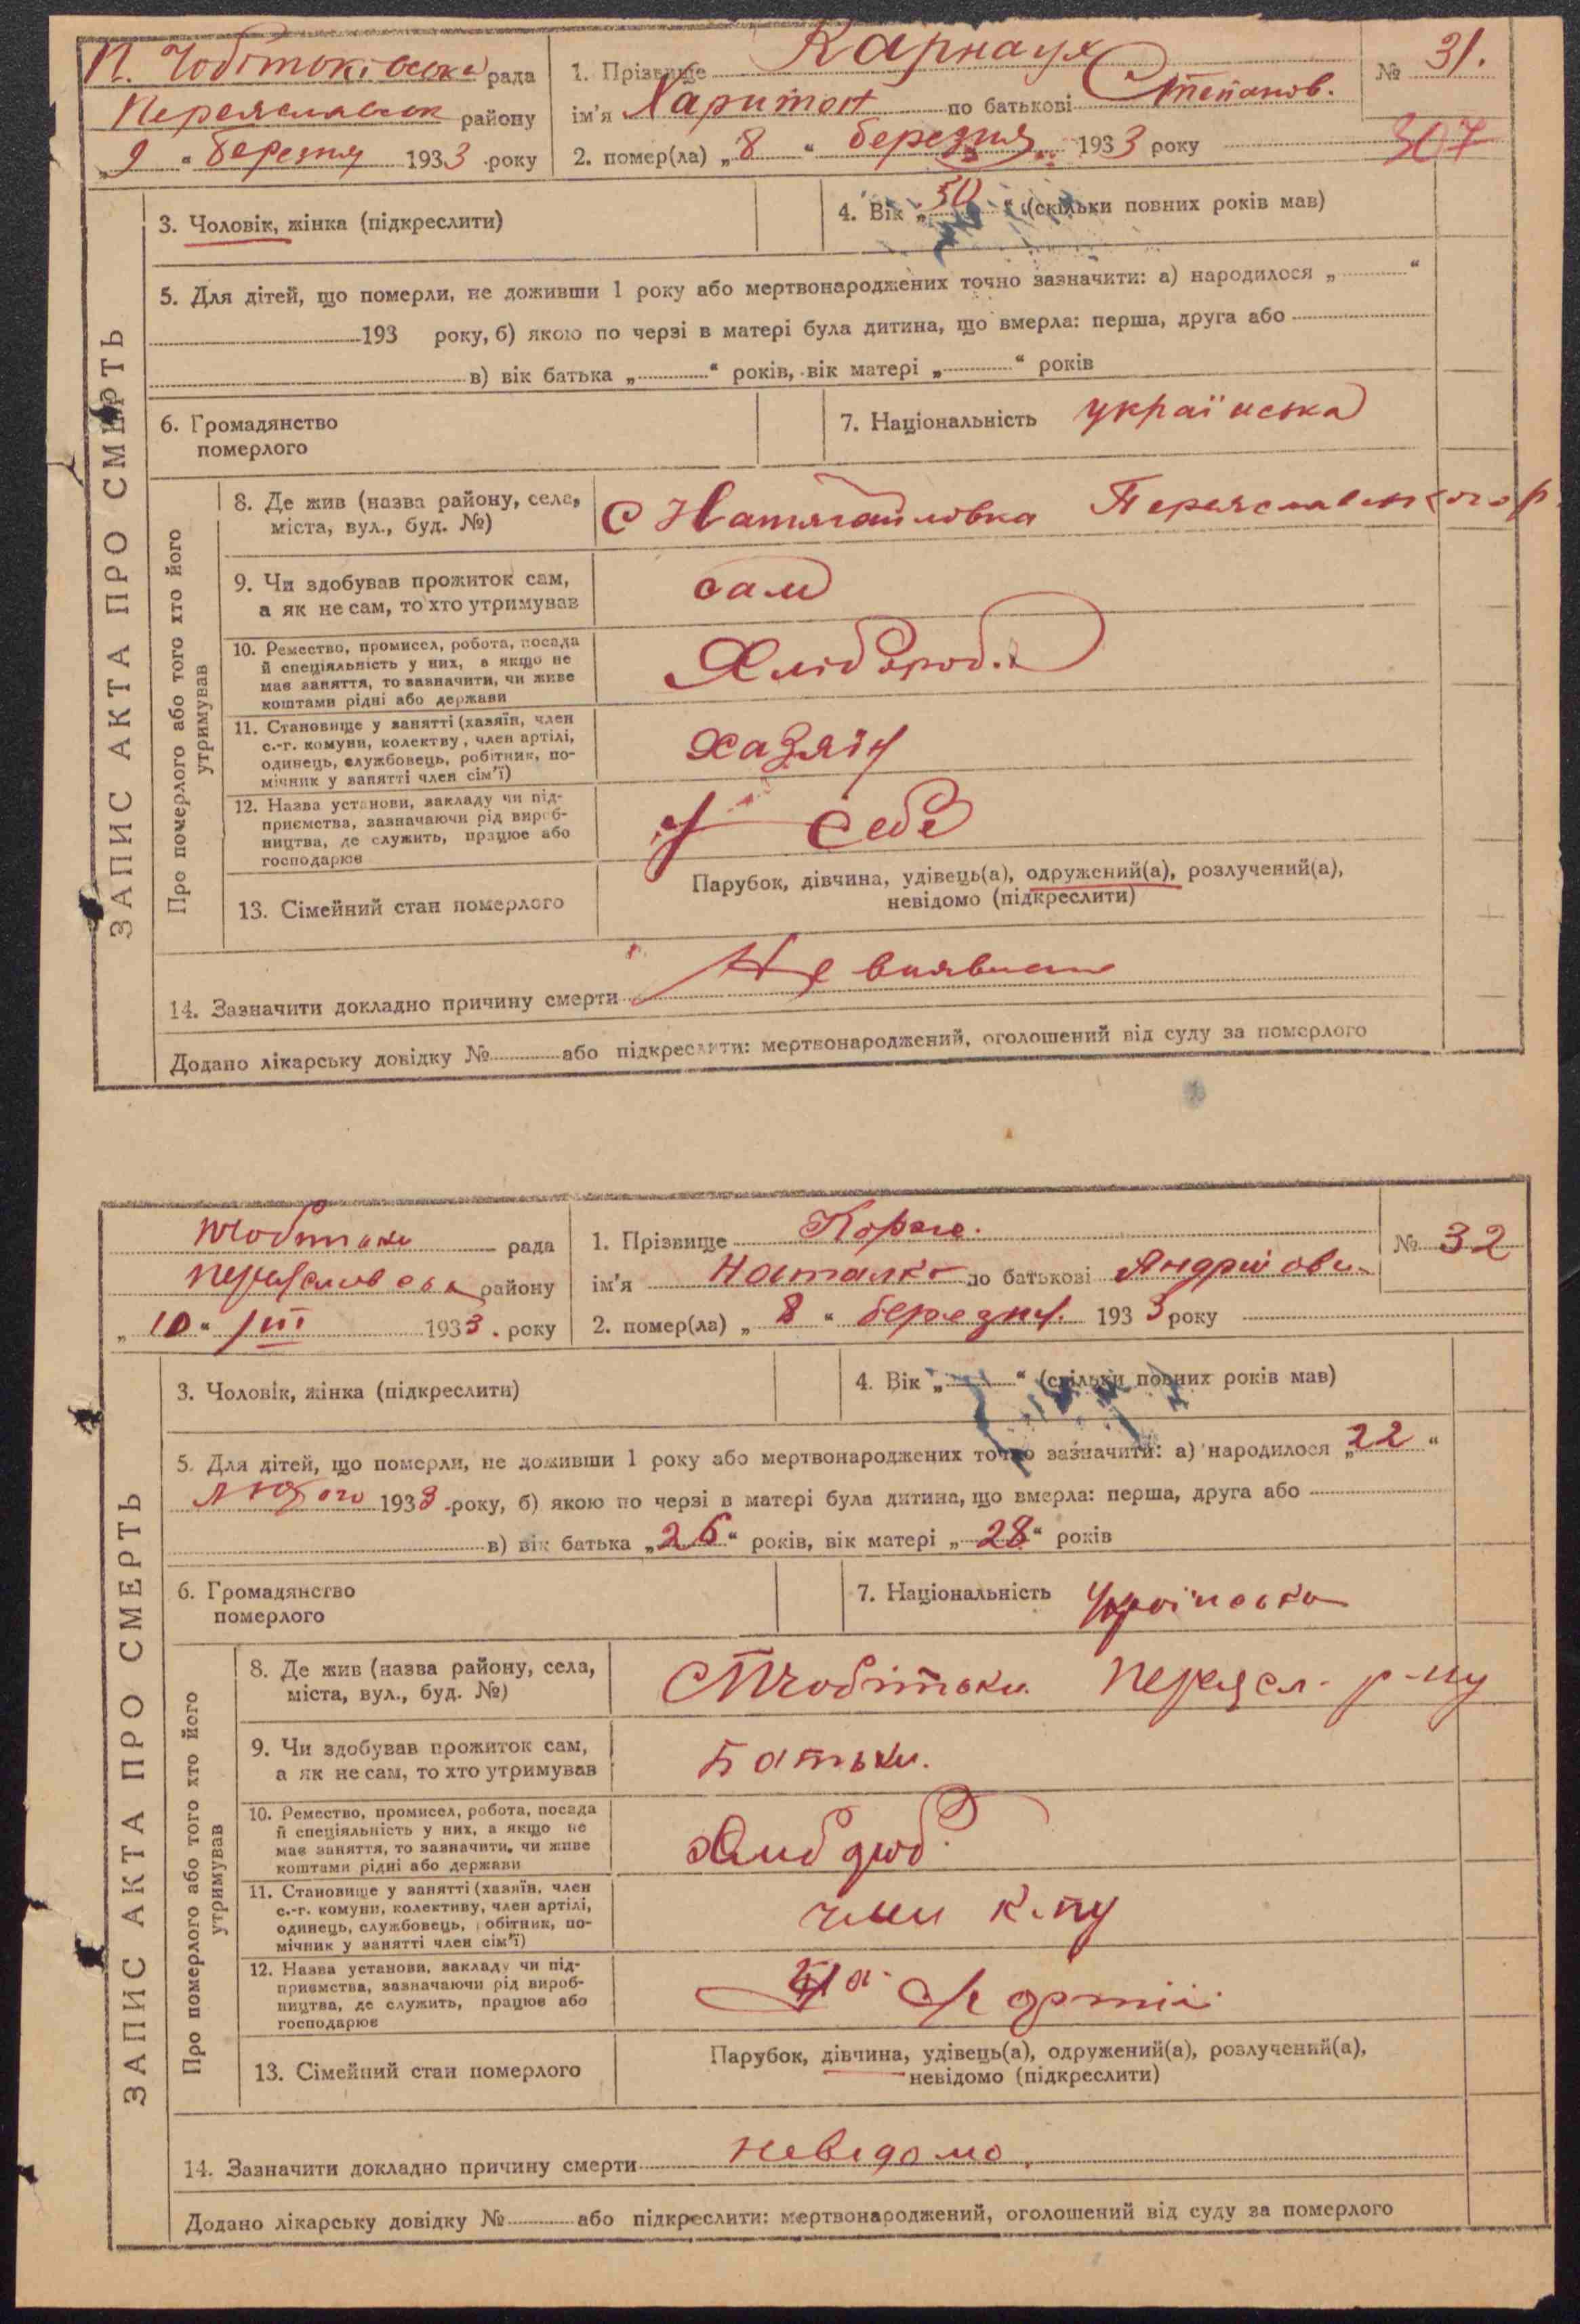 П. Чобітоківська рада
Переяславськ району
„9“ березня 1933 року
1. Прізвище Карнаух
ім'я Харитон по батькові Степанов.
2. помер(ла) „8“ березня 1933 року
№ 31.
307
ЗАПИС АКТА ПРО СМЕРТЬ
3. Чоловік, жінка (підкреслити)
4. Вік „50“ (скільки повних років мав)
5. Для дітей, що померли, не доживши 1 року або мертвонароджених точно зазначити: а) народилося „ “
193 року, б) якою по черзі в матері була дитина, що вмерла: перша, друга або
в) вік батька „ “ років, вік матері „ “ років
6. Громадянство
померлого
7. Національність українська
Про померлого або того хто його
утримував
8. Де жив (назва району, села,
міста, вул., буд. №)
С Натягайловка Переяславського р.
9. Чи здобував прожиток сам,
а як не сам, то хто утримував
сам
10. Ремество, промисел, робота, посада
й спеціяльність у них, а якщо не
має заняття, то зазначити, чи живе
коштами рідні або держави
Хлібороб.
11. Становище у занятті (хазяїн, член
с.-г. комуни, колективу, член артілі,
одинець, службовець, робітник, по-
мічник у занятті член сім'ї)
хазяїн
12. Назва установи, закладу чи під-
приємства, зазначаючи рід вироб-
ництва, де служить, працює або
господарює
у себе
13. Сімейний стан померлого
Парубок, дівчина, удівець(а), одружений(а), розлучений(а),
невідомо (підкреслити)
14. Зазначити докладно причину смерти Не виявлено
Додано лікарську довідку № або підкреслити: мертвонароджений, оголошений від суду за померлого
Чобітьки рада
Переяславська району
„10“ III 1933. року
1. Прізвище
ім'я Наталка по батькові Андріїови
2. помер(ла) „8“ березня. 1933 року
№ 32
ЗАПИС АКТА ПРО СМЕРТЬ
3. Чоловік, жінка (підкреслити)
4. Вік „ “ (скільки повних років мав)
5. Для дітей, що померли, не доживши 1 року або мертвонароджених точно зазначити: а) народилося „22“
лютого 1933 року, б) якою по черзі в матері була дитина, що вмерла: перша, друга або
в) вік батька „26“ років, вік матері „28“ років
6. Громадянство
померлого
7. Національність Українська
Про померлого або того хто його
утримував
8. Де жив (назва району, села,
міста, вул., буд. №)
С Чобітьки Переясл. р-ну
9. Чи здобував прожиток сам,
а як не сам, то хто утримував
Батьки.
10. Ремество, промисел, робота, посада
й спеціяльність у них, а якщо не
має заняття, то зазначити, чи живе
коштами рідні або держави
11. Становище у занятті (хазяїн, член
с.-г. комуни, колективу, член артілі,
одинець, службовець, робітник, по-
мічник у занятті член сім'ї)
член
12. Назва установи, закладу чи під-
приємства, зазначаючи рід вироб-
ництва, де служить, працює або
господарює
артілі
13. Сімейний стан померлого
Парубок, дівчина, удівець(а), одружений(а), розлучений(а),
невідомо (підкреслити)
14. Зазначити докладно причину смерти невідомо.
Додано лікарську довідку № або підкреслити: мертвонароджений, оголошений від суду за померлого